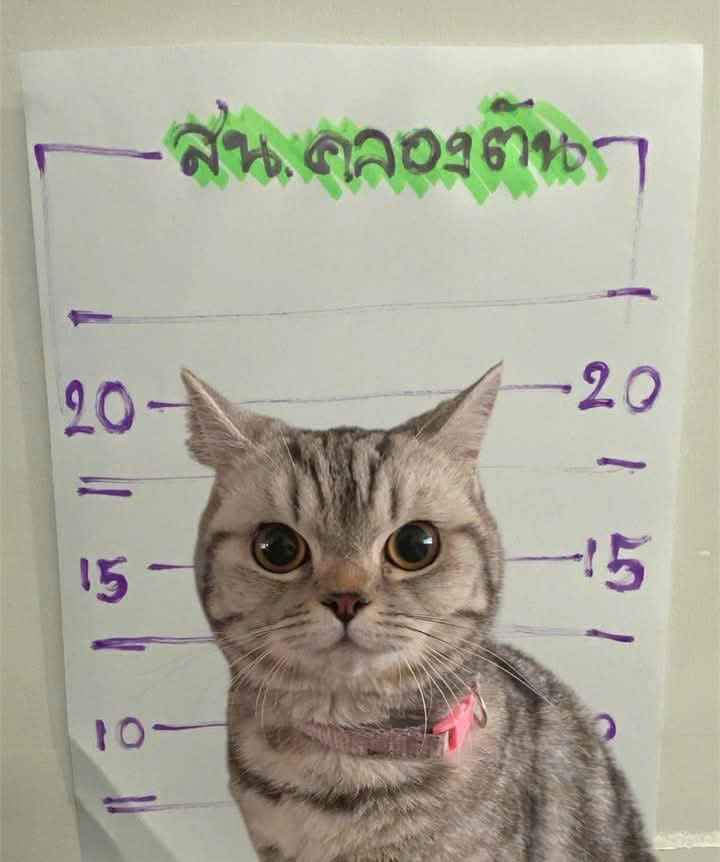 สน.คลองตัน
20 20
15 15
10 0